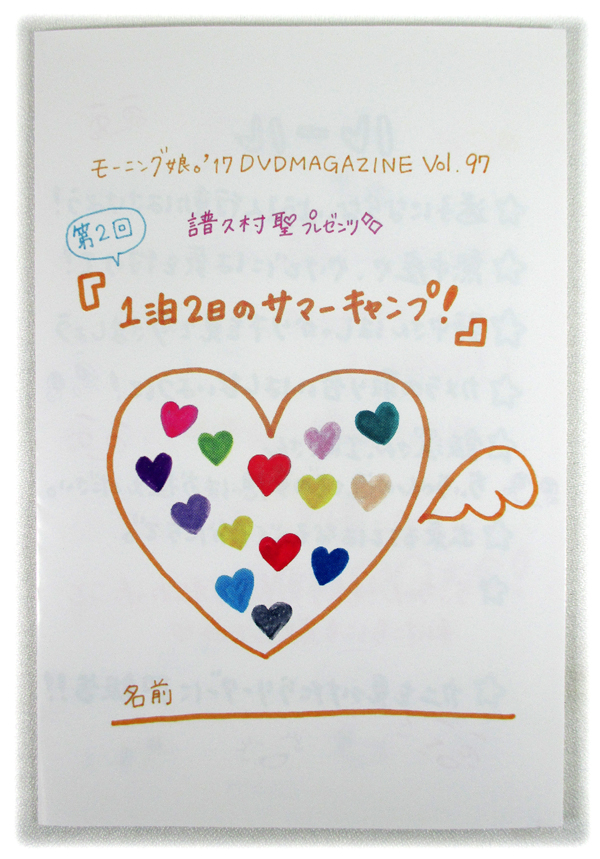 モーニング娘。'17 DVDMAGAZINE Vol.97
第2回
譜久村聖プレゼンツ
『1泊2日のサマーキャンプ!』
名前